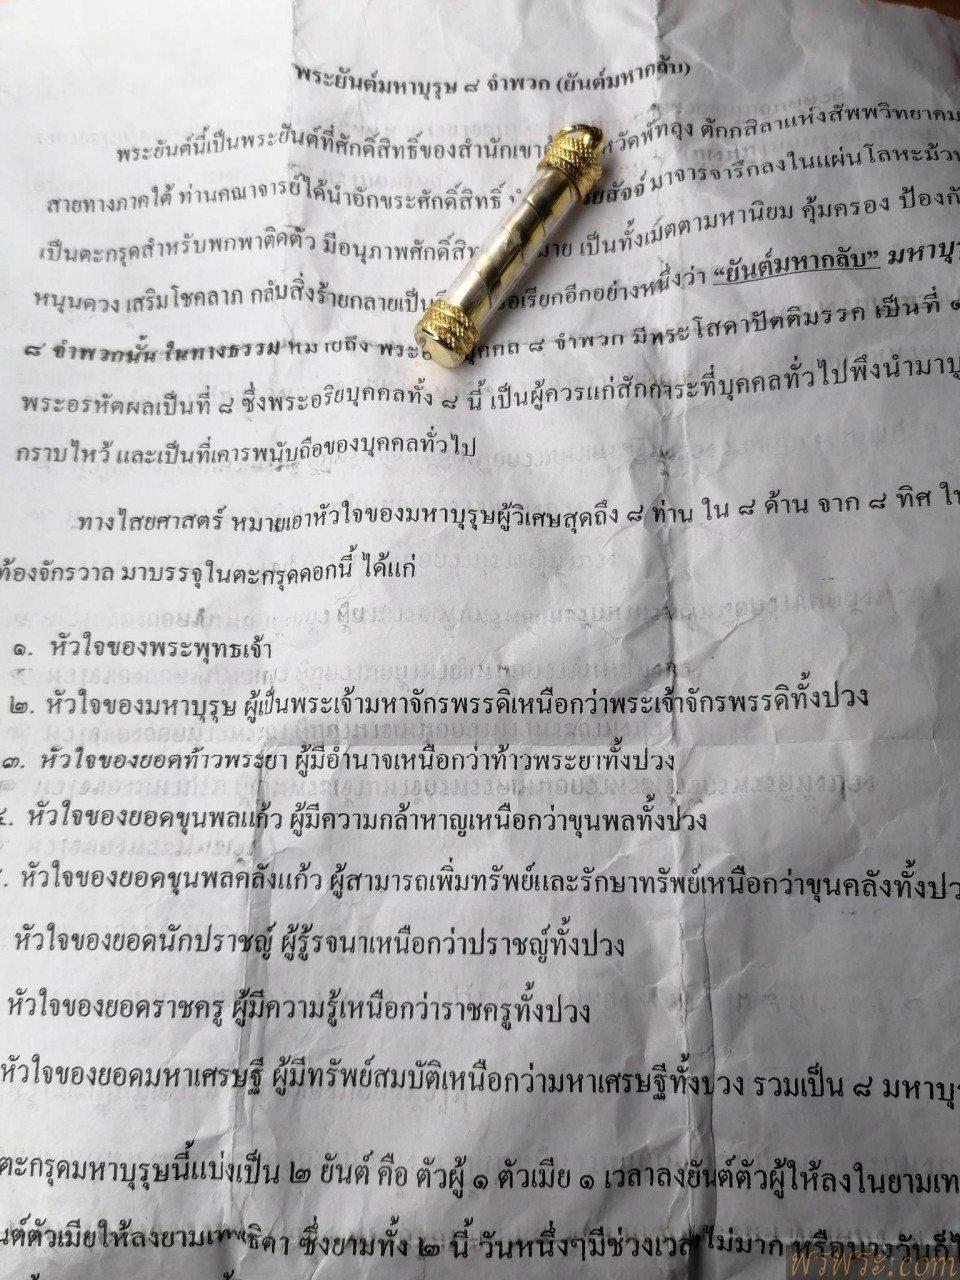 พระยันต์มหาบุรุษ ๘ จำพวก (ยันต์มหากลับ)
พระยันต์นี้เป็นพระยันต์ที่ศักดิ์สิทธิ์ของสำนักเขา หวัดพัทลุง ตักกสิลาแห่งสัพพวิทยาคม
สายทางภาคใต้ ท่านคณาจารย์ได้นำอักขระศักดิ์สิทธิ์ มาจารจารึกลงในแผ่นโลหะม้วน
เป็นตะกรุดสำหรับพกพาติดตัว มีอนุภาพศักดิ์สิท มาย เป็นทั้งเมตตามหานิยม คุ้มครอง ป้องกั
หนุนดวง เสริมโชคลาภ กลับสิ่งร้ายกลายเป็น เรียกอีกอย่างหนึ่งว่า “ยันต์มหากลับ” มหาบุรุ
๘ จำพวกนั้น ในทางธรรม หมายถึง พระ บุคคล ๘ จำพวก มีพระโสดาปัตติมรรค เป็นที่ ๑
พระอรหัตผลเป็นที่ ๘ ซึ่งพระอริยบุคคลทั้ง ๘ นี้ เป็นผู้ควรแก่สักการะที่บุคคลทั่วไปพึงนำมาบู
กราบไหว้ และเป็นที่เคารพนับถือของบุคคลทั่วไป
ทางไสยศาสตร์ หมายเอาหัวใจของมหาบุรุษผู้วิเศษสุดถึง ๘ ท่าน ใน ๘ ด้าน จาก ๘ ทิศ ใ
ท้องจักรวาล มาบรรจุในตะกรุดดอกนี้ ได้แก่
๑. หัวใจของพระพุทธเจ้า
๒. หัวใจของมหาบุรุษ ผู้เป็นพระเจ้ามหาจักรพรรดิเหนือกว่าพระเจ้าจักรพรรดิทั้งปวง
๓. หัวใจของยอดท้าวพระยา ผู้มีอำนาจเหนือกว่าท้าวพระยาทั้งปวง
๔. หัวใจของยอดขุนพลแก้ว ผู้มีความกล้าหาญเหนือกว่าขุนพลทั้งปวง
หัวใจของยอดขุนพลคลังแก้ว ผู้สามารถเพิ่มทรัพย์และรักษาทรัพย์เหนือกว่าขุนคลังทั้งปว
หัวใจของยอดนักปราชญ์ ผู้รู้รจนาเหนือกว่าปราชญ์ทั้งปวง
หัวใจของยอดราชครู ผู้มีความรู้เหนือกว่าราชครูทั้งปวง
หัวใจของยอดมหาเศรษฐี ผู้มีทรัพย์สมบัติเหนือกว่ามหาเศรษฐีทั้งปวง รวมเป็น ๘ มหาบุรุ
ตะกรุดมหาบุรุษนี้แบ่งเป็น ๒ ยันต์ คือ ตัวผู้ ๑ ตัวเมีย ๑ เวลาลงยันต์ตัวผู้ให้ลงในยามเท
นต์ตัวเมียให้ลงยามเทพธิดา ซึ่งยามทั้ง ๒ นี้ วันหนึ่งๆมีช่วงเวลาไม่มาก หรือบางวันก็ไ
พรพระ.com